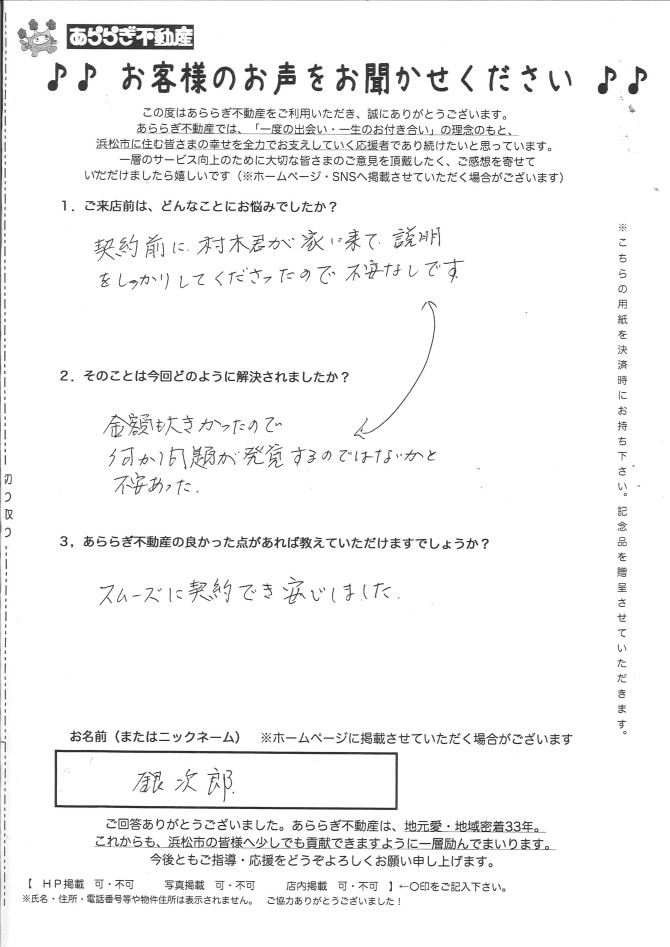 あららぎ不動産
♪♪ お客様のお声をお聞かせください ♪♪
この度はあららぎ不動産をご利用いただき、誠にありがとうございます。
あららぎ不動産では、「一度の出会い・一生のお付き合い」の理念のもと、
浜松市に住む皆さまの幸せを全力でお支えしていく応援者であり続けたいと思っています。
一層のサービス向上のために大切な皆さまのご意見を頂戴したく、ご感想を寄せて
いただけましたら嬉しいです（※ホームページ・SNSへ掲載させていただく場合がございます）
１．ご来店前は、どんなことにお悩みでしたか？
契約前に、村木君が家に来て、説明
をしっかりしてくださったので不安なしです
２．そのことは今回どのように解決されましたか？
金額も大きかったので
何か問題が発覚するのではないかと
不安あった.
３，あららぎ不動産の良かった点があれば教えていただけますでしょうか？
スムーズに契約でき安心しました.
※こちらの用紙を決済時にお持ち下さい。記念品を贈呈させていただきます。
切り取り
お名前（またはニックネーム）　※ホームページに掲載させていただく場合がございます
銀次郎.
ご回答ありがとうございました。あららぎ不動産は、地元愛・地域密着33年。
これからも、浜松市の皆様へ少しでも貢献できますように一層励んでまいります。
今後ともご指導・応援をどうぞよろしくお願い申し上げます。
【　ＨＰ掲載　可・不可　　写真掲載　可・不可　　店内掲載　可・不可　】←○印をご記入下さい。
※氏名・住所・電話番号等や物件住所は表示されません。　ご協力ありがとうございました！